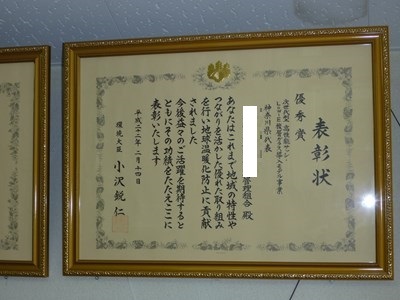 表彰状
優秀賞
神奈川県代表
管理組合 殿
あなたはこれまで地域の特性や
つながりを活かした優れた取り組み
を行い地球温暖化防止に貢献
されました
今後益々のご活躍を期待すると
ともにその功績をたたえここに
表彰いたします
平成二十二年二月十四日
環境大臣 小沢鋭仁